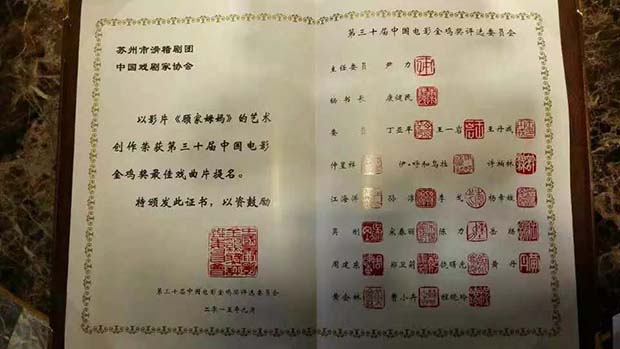 苏州市滑稽剧团
中国戏剧家协会
以影片《顾家姆妈》的艺术
创作荣获第三十届中国电影
金鸡奖最佳戏曲片提名。
特颁发此证书，以资鼓励
第三十届中国电影金鸡奖评选委员会
二〇一五年九月
第三十届中国电影金鸡奖评选委员会
主任委员 尹力
秘书长 康健民
委员 丁亚平 王一岩 王丹戎
仲呈祥 伊·呼和乌拉 许柏林
江海洋 孙淳 李戈 杨幸媛
吴刚 宋春丽 陈力 岳扬
周建东 饶曙光 黄丹
黄会林 曹小卉